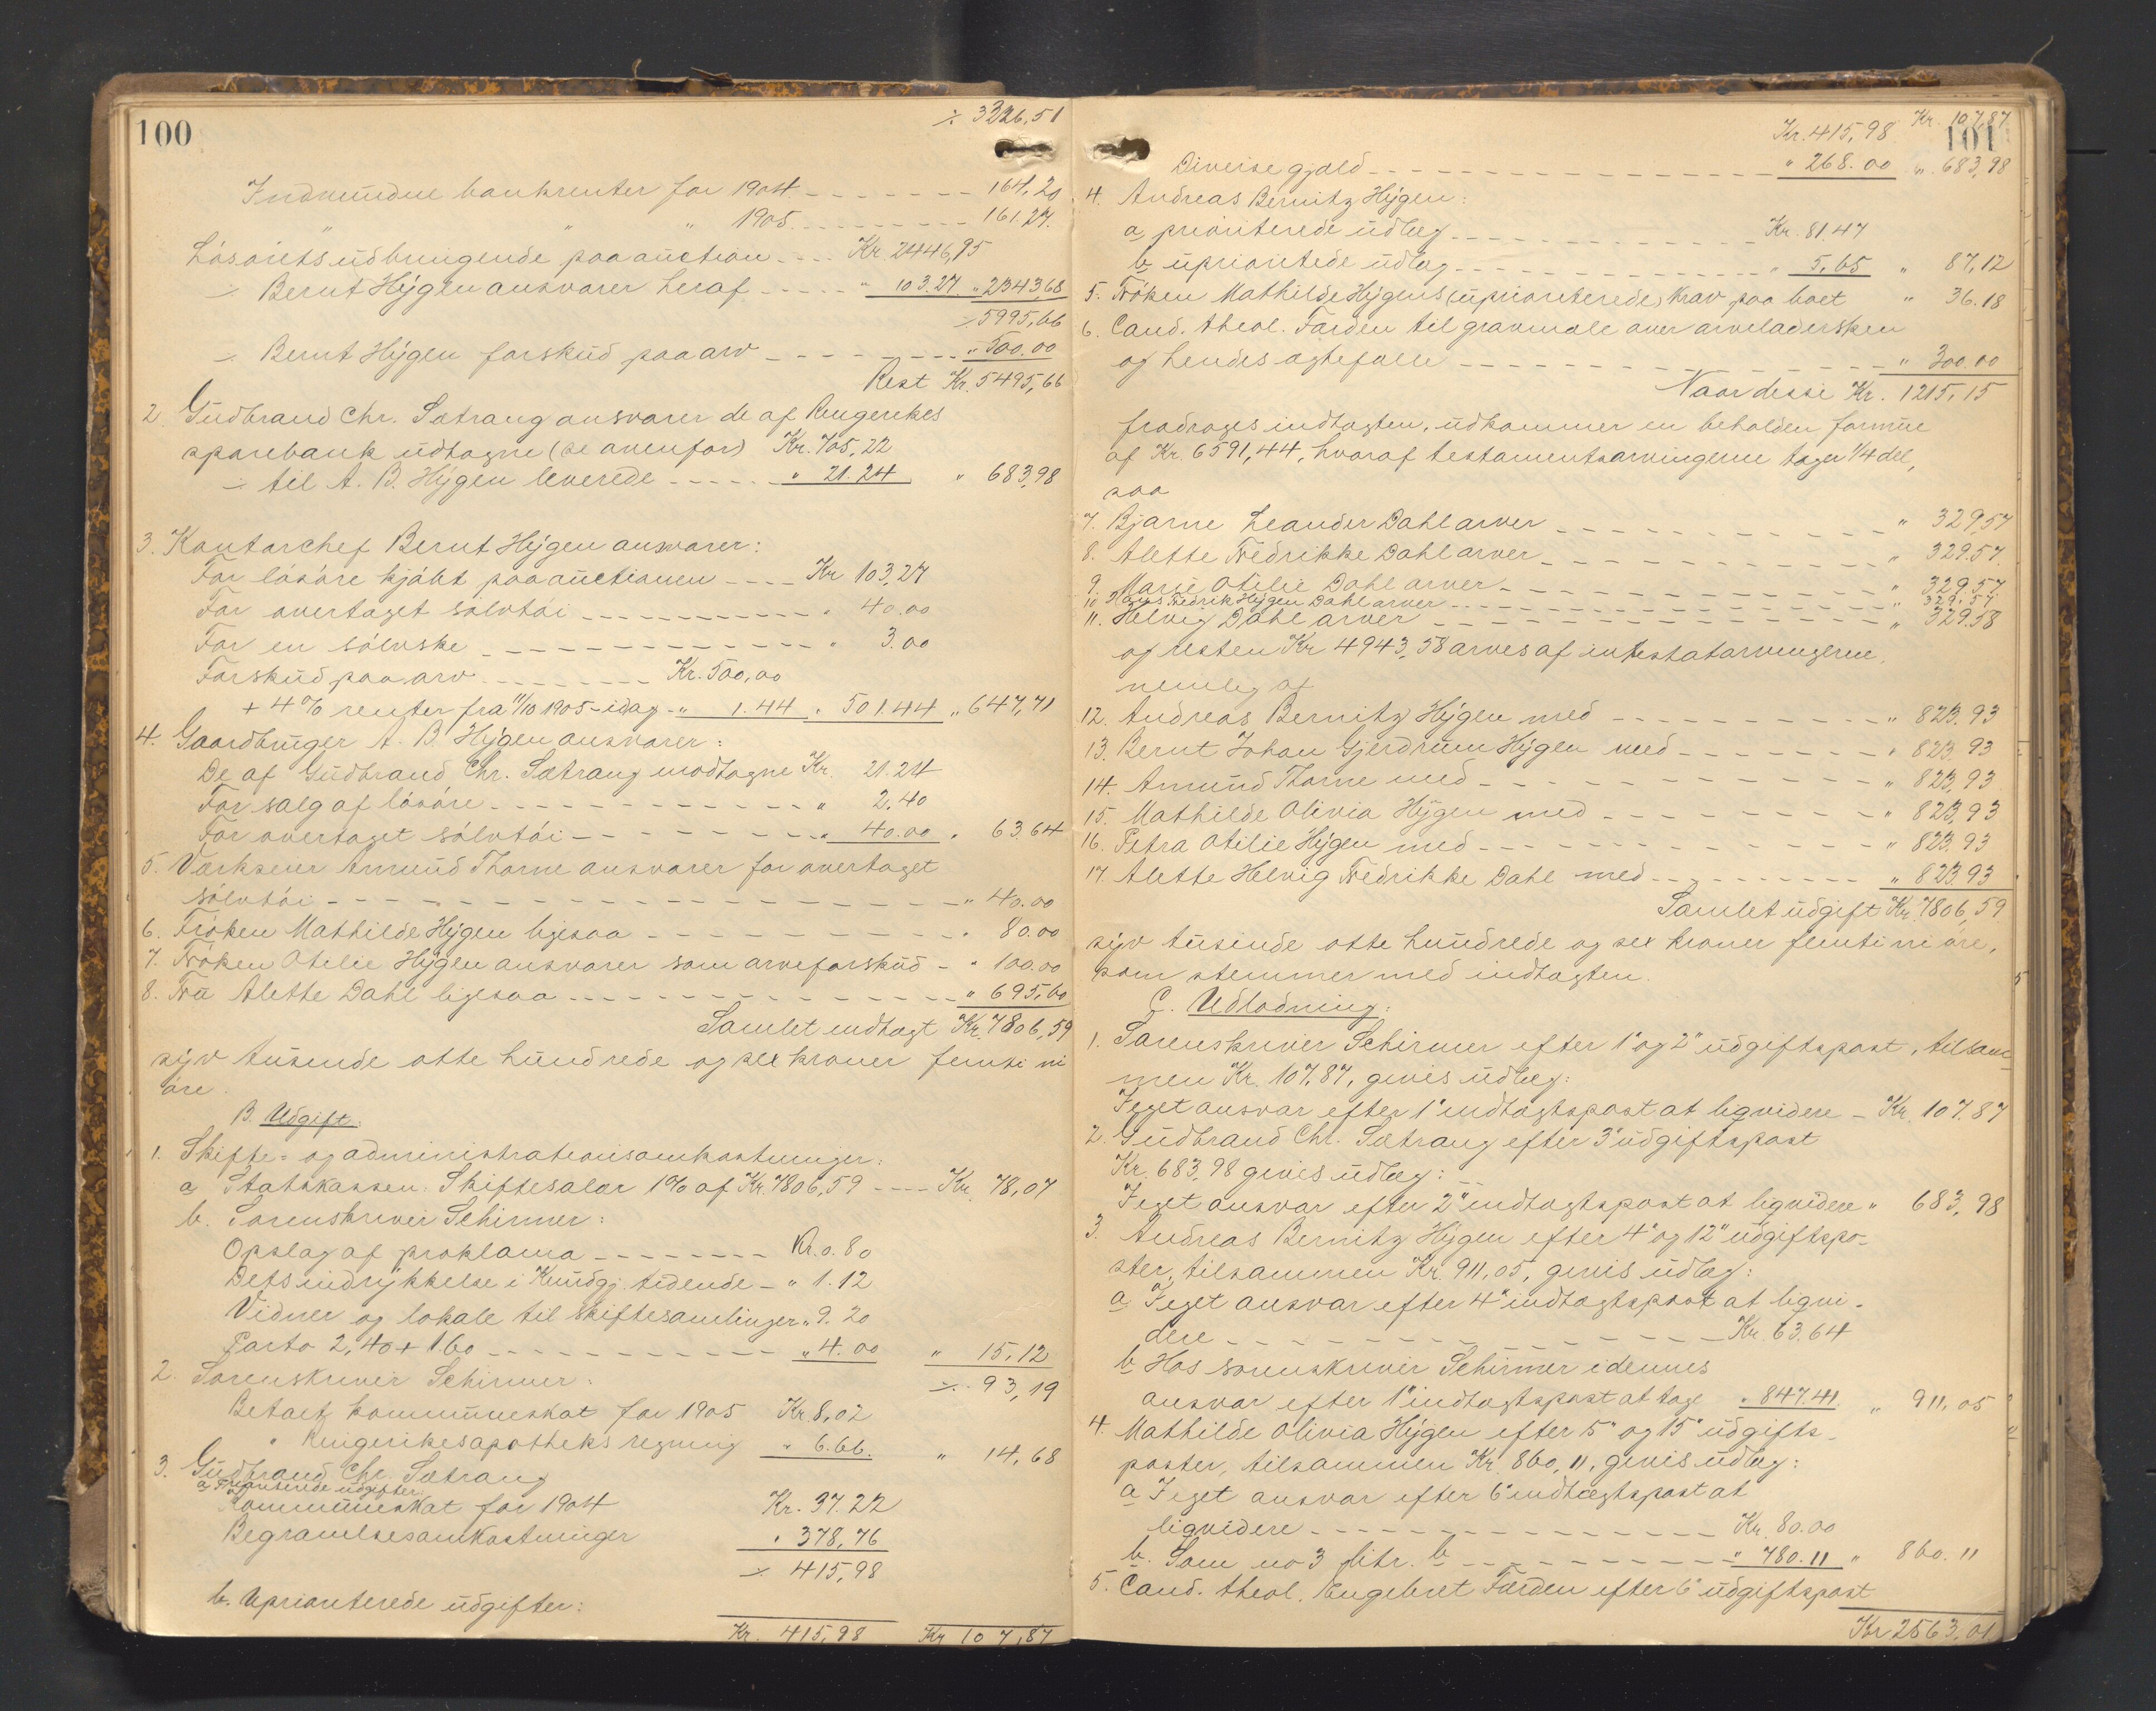 100
÷ 3326,51
Indvundne bankrenter for 1904 - - - - - - 164,20
" " " 1905 - - - - - - 161.27.
Løsørets udbringende paa auction - - - Kr. 2446,95
÷ Bernt Hÿgen ansvarer heraf - - - - " 103.27 " 2343,68
÷ 5995,66
÷ Bernt Hÿgen forskud paa arv - - - - - - " 500.00
Rest Kr. 5495,66
2. Gudbrand Chr. Sætrang ansvarer de af Ringerikes
sparebank udtagne (se ovenfor) Kr. 705,22
÷ til A. B. Hÿgen leverede - - - - - " 21.24 " 683,98
3. Kontorchef Bernt Hÿgen ansvarer:
For løsøre kjøbt paa auctionen - - - - Kr 103,27
For overtaget sølvtøi - - - - - - - - " 40.00
For en sølvske - - - - - - - - - " 3.00
Forskud paa arv - - - - - - Kr. 500,00
+ 4% renter fra 11/10 1905 - idag - " 1.44 " 501.44 " 647,71
4. Gaardbruger A. B. Hÿgen ansvarer:
De af Gudbrand Chr. Sætrang modtagne Kr. 21.24
For salg af løsøre - - - - - - - - " 2.40
For overtaget sølvtøi - - - - - - " 40.00 " 63.64
5. Værkseier Amund Thorne ansvarer for overtaget
sølvtøi - - - - - - - - - - - - - - - " 40.00
6. Frøken Mathilde Hÿgen ligesaa - - - - - - - " 80.00
7. Frøken Otilie Hÿgen ansvarer som arveforskud - " 100.00
8. Fru Alette Dahl ligesaa - - - - - - - - - " 695,60
Samlet indtægt Kr. 7806,59
syv tusende otte hundrede og sex kroner femti ni
øre.
B. Udgift:
1. Skifte- og administrationsomkostninger:
a Statskassen. Skiftesalær 1% af Kr. 7806,59 - - - - Kr. 78,07
b. Sorenskriver Schirmer:
Opslag af proklama - - - - - - - Kr. 0.80
Dets indrykkelse i Kundgj. tidende - " 1.12
Vidner og lokale til skiftesamlinger " 9.20
Porto 2,40 + 1.60 - - - - - - - - - " 4.00 " 15,12
2. Sorenskriver Schirmer: ÷ 93,19
Betalt kommuneskat for 1905 Kr. 8,02
" Ringerikes apotheks regning " 6.66. " 14,68
3. Gudbrand Chr. Sætrang
a Prioriterede udgifter:
Kommuneskat for 1904 Kr. 37.22
Begravelsesomkostninger " 378,76
÷ 415,98
b. Uprioriterede udgifter:
Kr. 415,98 Kr 107,87
101
Kr. 415,98 Kr. 107,87
Diverse gjæld - - - - - - - - - - - - " 268.00 " 683,98
4. Andreas Bernitz Hÿgen:
a prioriterede udlæg - - - - - - - - - Kr. 81.47
b uprioritede udlæg - - - - - - - - - " 5,65 " 87,12
5. Frøken Mathilde Hÿgens (uprioriterede) krav paa boet " 36.18
6. Cand. theol. Færden til gravmæle over arveladersken
og hendes ægtefælle - - - - - - - - - - " 300.00
Naar disse Kr. 1215,15
fradrages indtægten, udkommer en beholden formue
af Kr. 6591,44, hvoraf testamentsarvingerne tager 1/4 del,
saa
7. Bjarne Leander Dahl arver - - - - - - - - " 329,57
8. Alette Fredrikke Dahl arver - - - - - - - " 329.57
9. Marie Otilie Dahl arver - - - - - - - - " 329,57.
10. Magnus Fredrik Hÿgen Dahl arver - - - - - - " 329.57
11. Helvig Dahl arver - - - - - - - - - - " 329.58
og resten Kr 4943,58 arves af intestatarvingerne,
nemlig af
12. Andreas Bernitz Hÿgen med - - - - - - - " 823,93
13. Bernt Johan Gjerdrum Hÿgen med - - - - - " 823.93
14. Amund Thorne med - - - - - - - - - " 823,93
15. Mathilde Olivia Hÿgen med - - - - - - - " 823,93
16. Petra Otilie Hÿgen med - - - - - - - - " 823.93
17. Alette Helvig Fredrikke Dahl med - - - - - - " 823.93
Samlet udgift Kr. 7806,59
syv tusinde otte hundrede og sex kroner femti ni øre,
som stemmer med indtægten.
C. Udlodning:
1. Sorenskriver Schirmer efter 1" og 2" udgiftspost, tilsam-
men Kr. 107.87, gives udlæg:
I eget ansvar efter 1" indtægtspost at liqvidere - Kr. 107.87
2. Gudbrand Chr. Sætrang efter 3" udgiftspost
Kr. 683,98 gives udlæg:
I eget ansvar efter 2" indtægtspost at liqvidere " 683,98
3. Andreas Bernitz Hÿgen efter 4" og 12" udgiftspo-
ster, tilsammen Kr. 911,05, gives udlæg:
a I eget ansvar efter 4" indtægtspost at liqvi-
dere - - - - - - - - - - - - Kr. 63.64
b Hos sorenskriver Schirmer i dennes
ansvar efter 1" indtægtspost at tage " 847.41. " 911,05
4. Mathilde Olivia Hÿgen efter 5" og 15" udgifts-
poster, tilsammen Kr. 860,11, gives udlæg:
a I eget ansvar efter 6" indtægtspost at
liqvidere - - - - - - - - - - - Kr. 80.00
b. Som no 3 litr. b - - - - - - - - " 780.11 " 860.11
5. Cand. theol. Engebret Færden efter 6" udgiftspost
Kr 2563,01